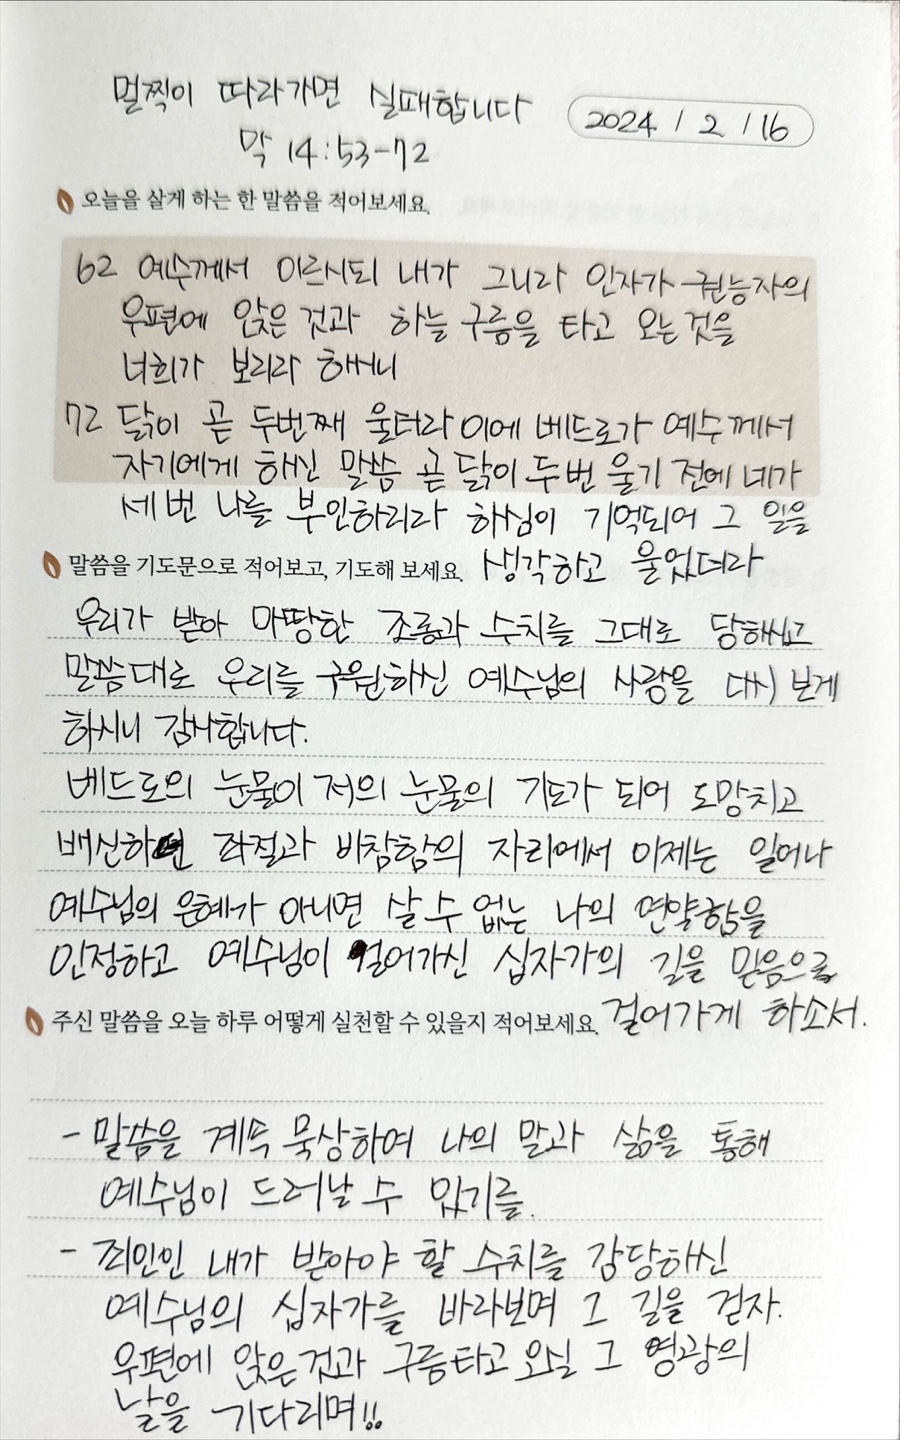 멀찍이 따라가면 실패합니다
2024 / 2 / 16
막 14:53-72
오늘을 살게 하는 한 말씀을 적어보세요.
62 예수께서 이르시되 내가 그니라 인자가 권능자의
우편에 앉은 것과 하늘 구름을 타고 오는 것을
너희가 보리라 하시니
72 닭이 곧 두번째 울더라 이에 베드로가 예수께서
자기에게 하신 말씀 곧 닭이 두 번 울기 전에 네가
세 번 나를 부인하리라 하심이 기억되어 그 일을
생각하고 울었더라
말씀을 기도문으로 적어보고, 기도해 보세요.
우리가 받아 마땅한 조롱과 수치를 그대로 당해하시고
말씀대로 우리를 구원하신 예수님의 사랑을 다시 보게
하시니 감사합니다.
베드로의 눈물이 저의 눈물의 기도가 되어 도망치고
배신하면 좌절과 비참함의 자리에서 이제는 일어나
예수님의 은혜가 아니면 살 수 없는 나의 연약함을
인정하고 예수님이 걸어가신 십자가의 길을 믿음으로
걸어가게 하소서.
주신 말씀을 오늘 하루 어떻게 실천할 수 있을지 적어보세요.
- 말씀을 계속 묵상하여 나의 말과 삶을 통해
예수님이 드러날 수 있기를.
- 죄인인 내가 받아야 할 수치를 감당하신
예수님의 십자가를 바라보며 그 길을 걷자.
우편에 앉은 것과 구름타고 오실 그 영광의
날을 기다리며!!